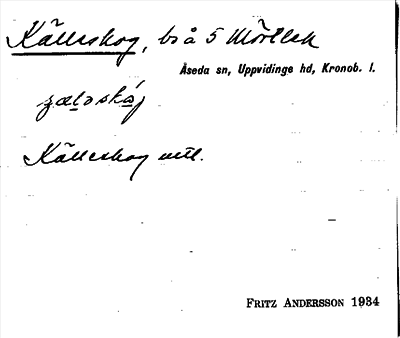 Källeskog, bs å 5 Mörtlek
Åseda sn, Uppvidinge hd, Kronob. l.
Källeskog utt.
FRITZ ANDERSSON 1934